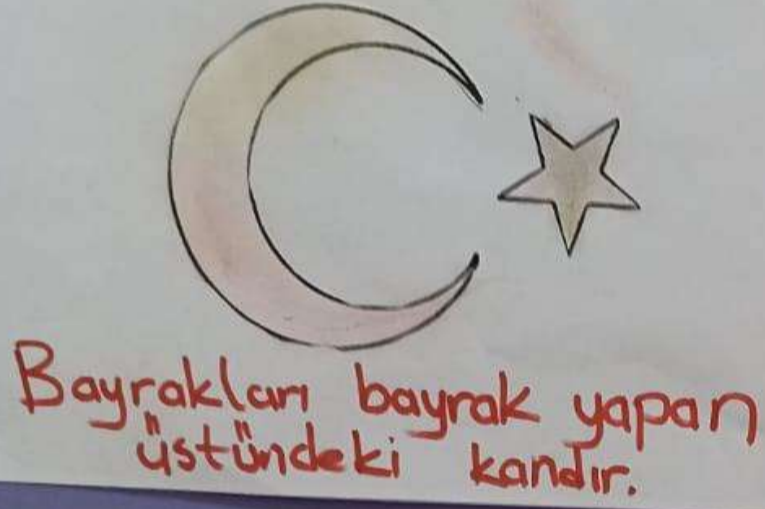 Bayrakları bayrak yapan
üstündeki kandır.